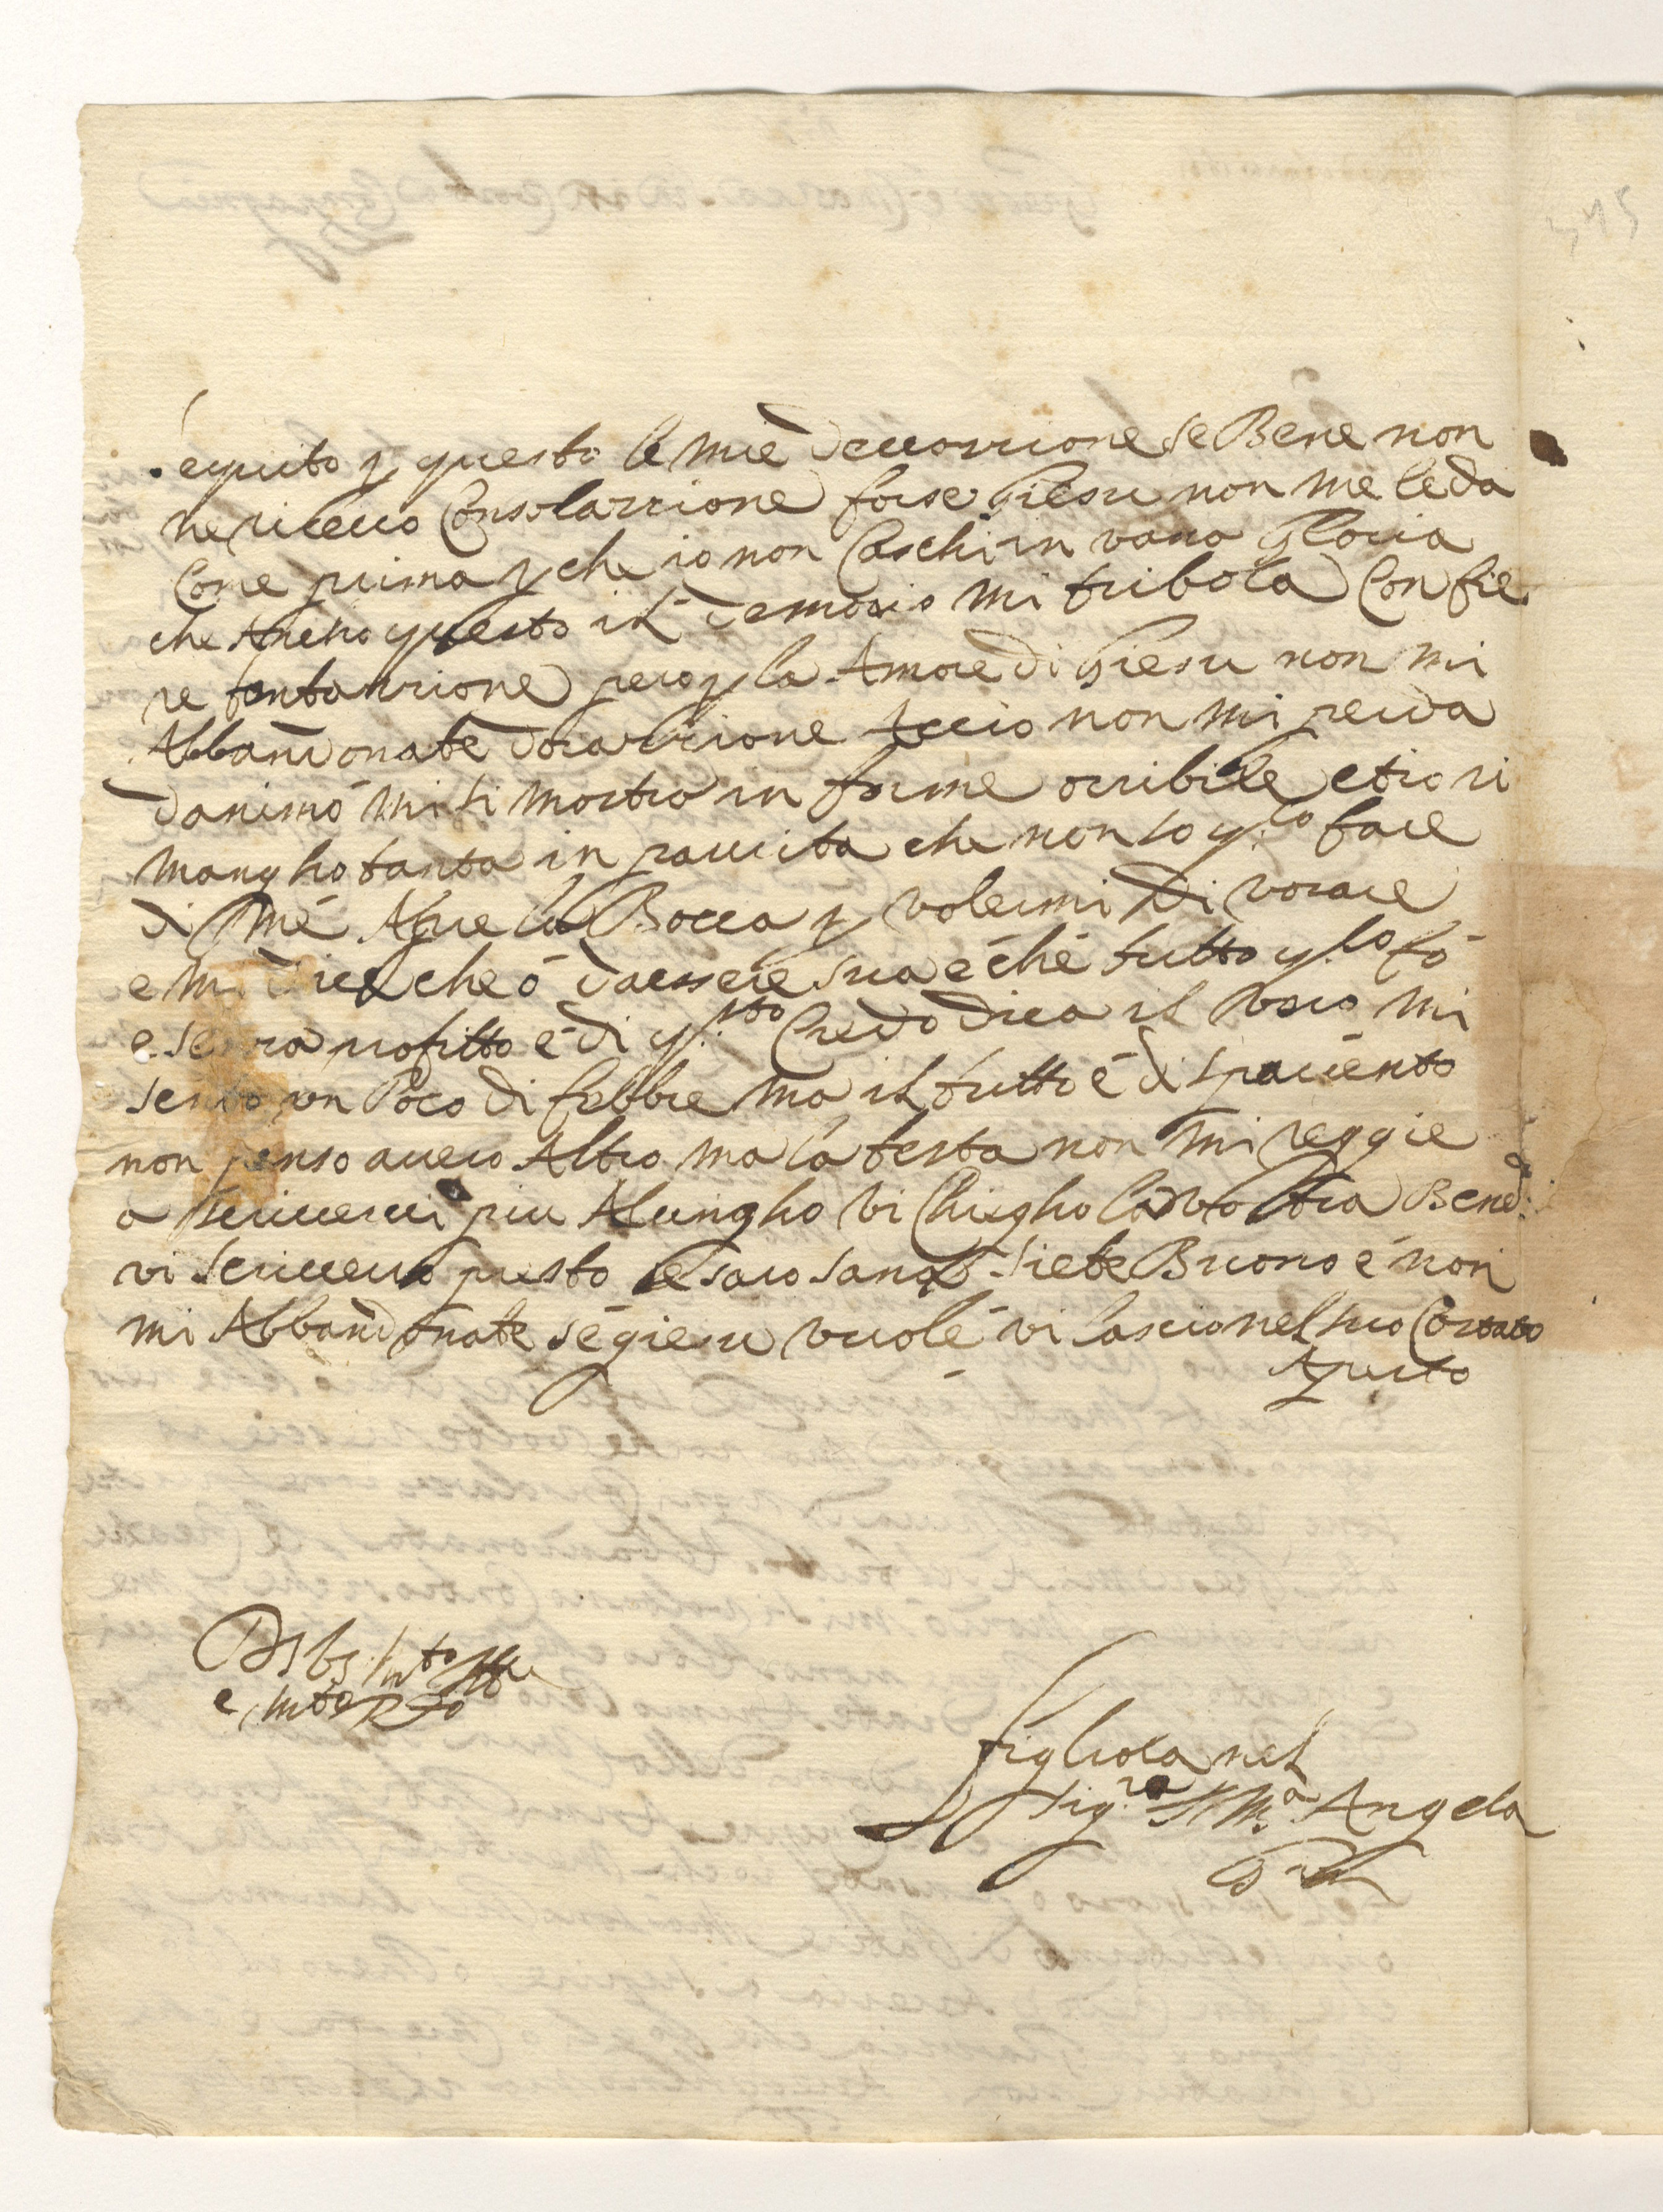 seguito p questo le mie devorrione se Bene non
ne ricevo Consolarrione forse Giesu non me le da
Come prima p che io non Caschi in vana gloria
che Apeno questo il demonio mi tribola Con fie
re tentarrione pero p la Amore di Giesu non mi
Abbandonate dorarrione Accio non mi perda
danimo mi si mostra in forme orribile et io ri
mangho tanta in paurita che non so q.lo fare
di me Apre la Bocca p volermi di vorare
e mi dice che ó daessere sua é ché tutto q.lo fó
e senra profitto é di q.sto Credo dica il vero mi
sento un Poco di febbre ma il tutto é di spavento
non penso avere Altro ma la testa non mi reggie
a scrivervi piu Alungho vi Chiegho la vostra Bened.
vi scrivero presto se saro sana siete Buono é non
mi Abbandonate sé giesu vuolé vi lascio nel suo Costato
Aperto
figliola nel
Sig.re Angela
345